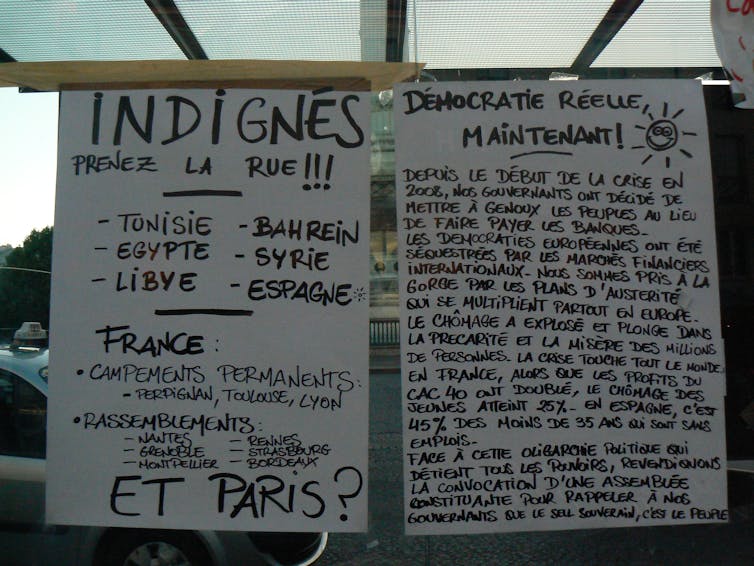 INDIGNÉS
PRENEZ LA RUE!!!
- TUNISIE
- EGYPTE
- LIBYE
- BAHREIN
- SYRIE
- ESPAGNE
FRANCE:
• CAMPEMENTS PERMANENTS:
- PERPIGNAN, TOULOUSE, LYON
• RASSEMBLEMENTS:
- NANTES
- GRENOBLE
- MONTPELLIER
- RENNES
- STRASBOURG
- BORDEAUX
ET PARIS?
DÉMOCRATIE RÉELLE,
MAINTENANT!
DEPUIS LE DÉBUT DE LA CRISE EN
2008, NOS GOUVERNANTS ONT DÉCIDÉ DE
METTRE À GENOUX LES PEUPLES AU LIEU
DE FAIRE PAYER LES BANQUES-
LES DEMOCRATIES EUROPÉENNES ONT ÉTÉ
SÉQUESTRÉES PAR LES MARCHÉS FINANCIERS
INTERNATIONAUX- NOUS SOMMES PRIS À LA
GORGE PAR LES PLANS D'AUSTERITÉ
QUI SE MULTIPLIENT PARTOUT EN EUROPE-
LE CHÔMAGE A EXPLOSÉ ET PLONGE DANS
LA PRECARITÉ ET LA MISÈRE DES MILLIONS
DE PERSONNES- LA CRISE TOUCHE TOUT LE MONDE
EN FRANCE, ALORS QUE LES PROFITS DU
CAC 40 ONT DOUBLÉ, LE CHÔMAGE DES
JEUNES ATTEINT 25%- EN ESPAGNE, C'EST
45% DES MOINS DE 35 ANS QUI SONT SANS
EMPLOIS-
FACE À CETTE OLIGARCHIE POLITIQUE QUI
DÉTIENT TOUS LES POUVOIRS, REVENDIQUONS
LA CONVOCATION D'UNE ASSEMBLÉE
CONSTITUANTE POUR RAPPELER À NOS
GOUVERNANTS QUE LE SEUL SOUVERAIN, C'EST LE PEUPLE